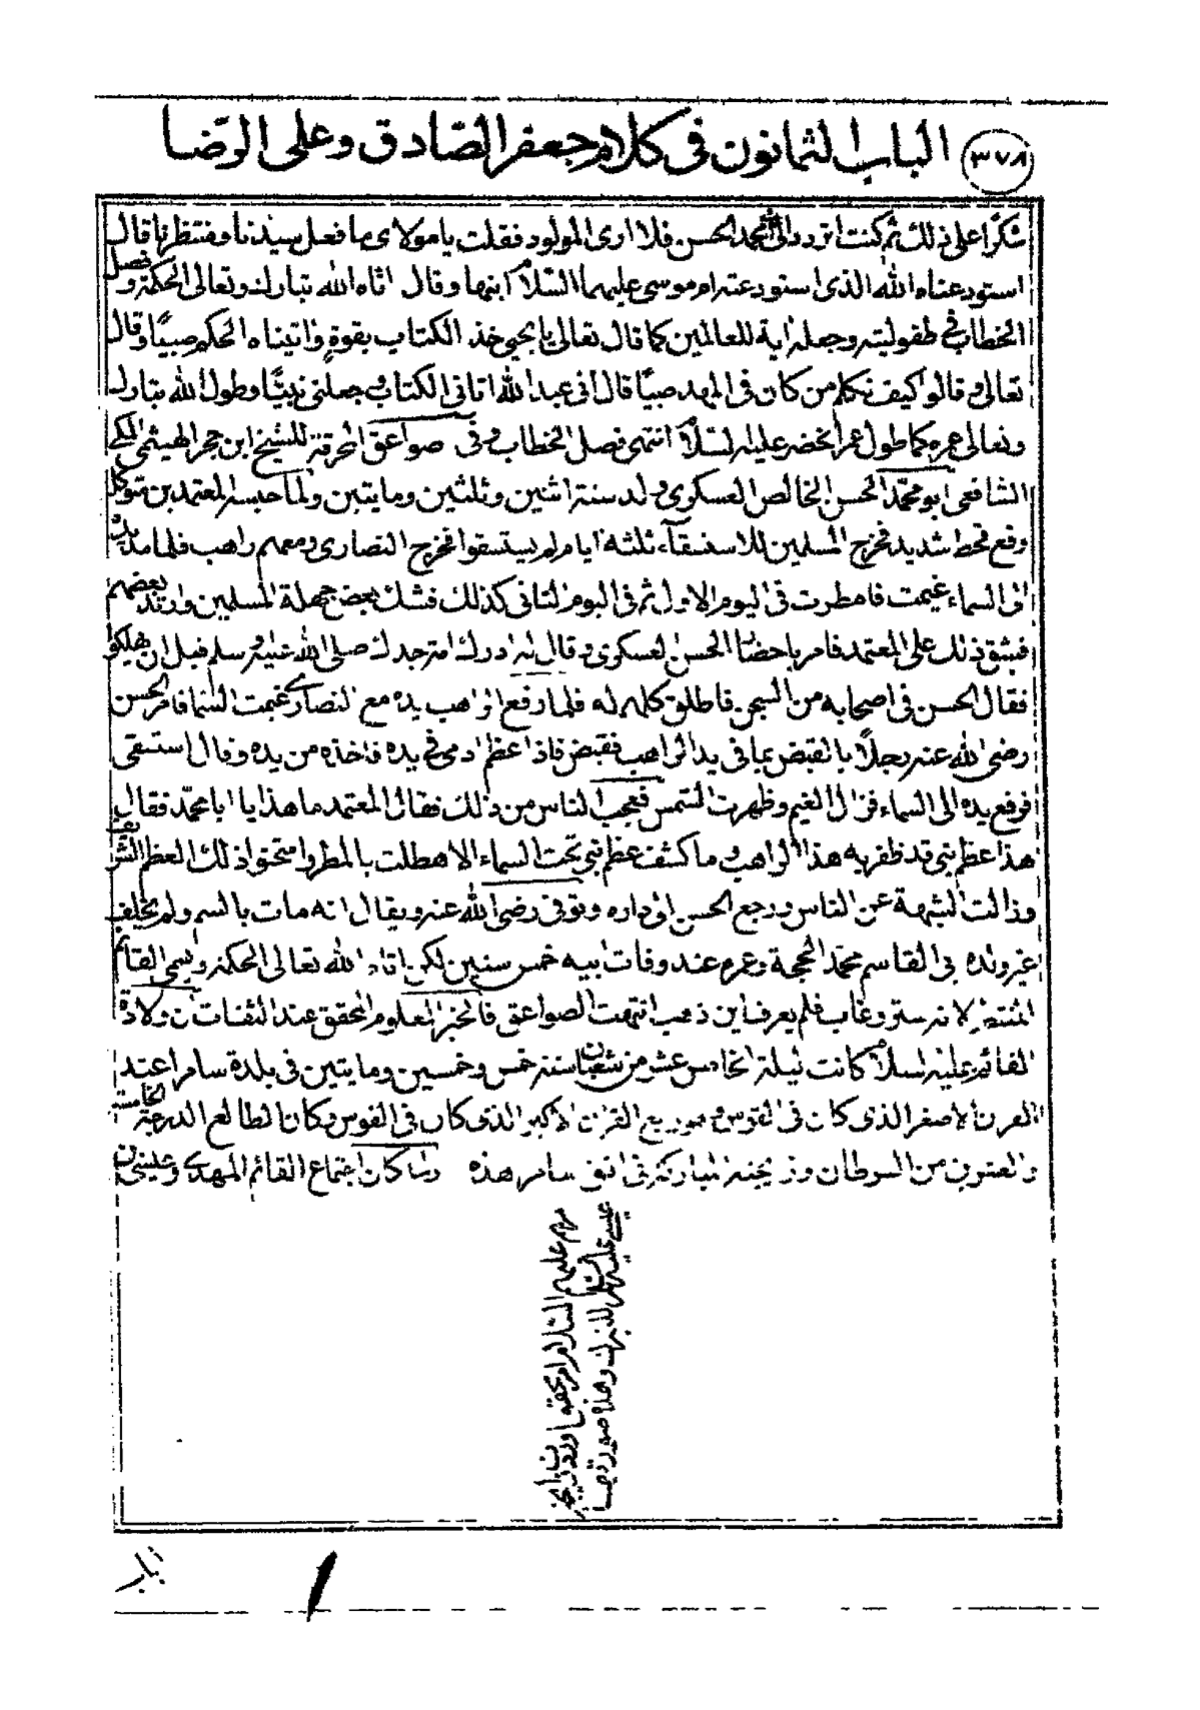 ٣٧٨ الباب الثمانون فى كلام جعفر الصّادق وعلى الرّضا
شكرا على ذلك ثم كنت اتردد الى ابى محمد الحسن فلا ارى المولود فقلت يا مولاى ما فعل سيدنا ومنتظرنا قال
استودعناه الله الذى استودعته ام موسى عليهما السّلام ابنها وقال اتاه الله تبارك وتعالى الحكمة وفصل
الخطاب فى طفوليته وجعله اية للعالمين كما قال تعالى يا يحيى خذ الكتاب بقوة واتيناه الحكم صبيًا وقال
تعالى وقالوا كيف نكلم من كان فى المهد صبيًا قال انى عبد الله اتانى الكتاب وجعلنى نبيًا وطول الله تبارك
وتعالى عمره كما طول عمر الخضر عليه السّلام انتهى فصل الخطاب وفى صواعق المحرقة للشيخ ابن حجر الهيثمى المكى
الشافعى ابو محمّد الحسن الخالص العسكرى ولد سنة اثنين وثلثين ومايتين ولما حبسه المعتمد بن متوكل
وقع قحط شديد فخرج المسلمين للاستسقآء ثلثة ايام لم يستسقوا فخرج النصارى ومعهم راهب فلما مد يده
الى السماء غيمت فامطرت فى اليوم الاول ثم فى اليوم الثانى كذلك فشك بعض جهلة المسلمين وارتد بعضهم
فشق ذلك على المعتمد فامر باحضار الحسن العسكرى وقال له ادرك امة جدك صلى الله عليه وسلم قبل ان يهلكوا
فقال الحسن فى اصحابه من السجن فاطلق كلهم له فلما رفع الراهب يده مع النصارى غيمت السّما فامر الحسن
رضى الله عنه رجلًا بالقبض بما فى يد الراهب فقبض فاذا عظم ادمى فى يده فاخذه من يده وقال استسقى
فرفع يده الى السماء فزال الغيم وظهرت الشمس فعجب الناس من ذلك فقال المعتمد ما هذا يا ابا محمّد فقال
هذا عظم نبى قد ظفر به هذا الراهب وما كشف عظم نبى تحت السماء الا هطلت بالمطر وامتحنوا ذلك العظم الشريف
وزالت الشبهة عن الناس ورجع الحسن الى داره وتوفى رضى الله عنه ويقال انه مات بالسم ولم يخلف
غير ولده ابى القاسم محمّد الحجة وعمره عند وفات ابيه خمس سنين لكن اتاه الله تعالى الحكمة ويسمى القائم
المنتظر لانه ستر وغاب فلم يعرف اين ذهب انتهت الصواعق فالخبر المعلوم المحقق عند الثقات ان ولادة
القائم عليه السلام كانت ليلة الخامس عشر من شعبان سنة خمس وخمسين ومايتين فى بلدة سامرا عند
القران الاصغر الذى كان فى القوس وهو رابع القران الاكبر الذى كان فى القوس وكان الطالع الدرجة الخامسة
والعشرين من السرطان وزيجته المباركة فى افق سامر هذه ولما كان اجتماع القائم المهدى وعيسى بن
مريم عليهم السّلام امر محققا
عيسى عليه السلام للتبرك وهذه صورتها